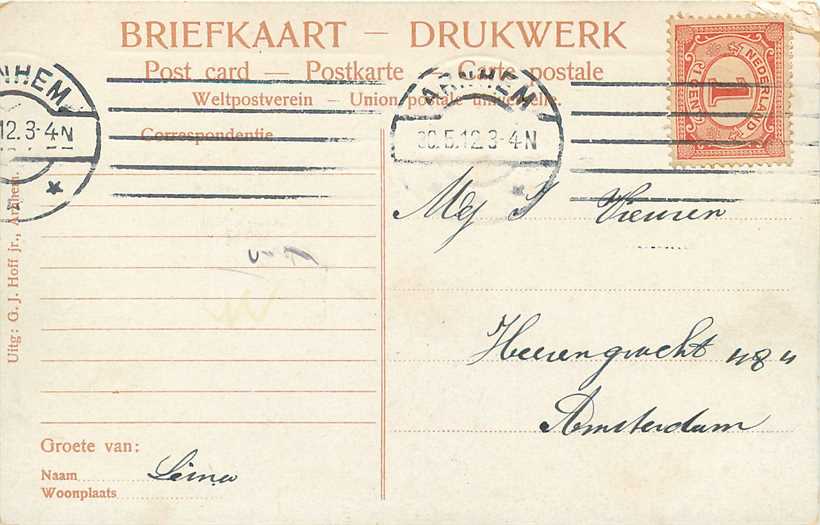 BRIEFKAART — DRUKWERK
Post card — Postkarte — Carte postale
Weltpostverein — Union postale universelle.
Correspondentie
NHEM
12.3-4N
ARNHEM
30.5.12.3-4N
NEDERLAND
1
1 CENT
Mej
Heerengracht 484
Amsterdam
Groete van:
Naam
Woonplaats
Uitg: G. J. Hoff jr., Arnhem.